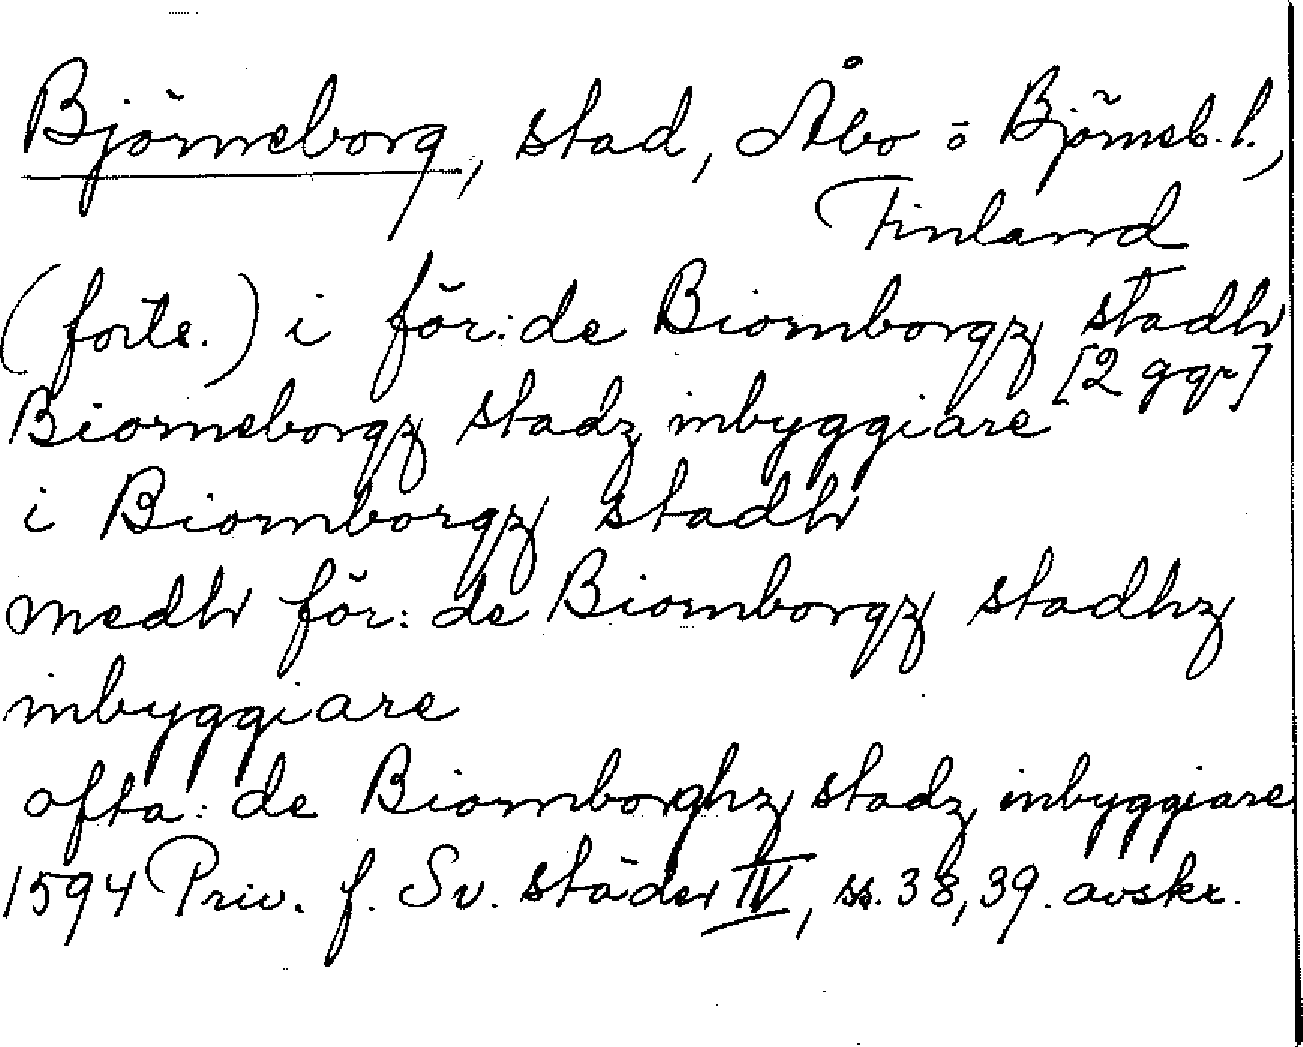 Björneborg, stad, Åbo o Björneb. l.,
Finland
(forts.) i för:de Biornborgz stadh
[2 ggr]
Biorneborgz stadz inbyggiare
i Biornborgz stadh
medh för: de Biornborgz stadhz
inbyggiare
ofta: de Biornborghz stadz inbyggiare
1594 Priv. f. Sv. städer IV, ss. 38, 39. avskr.